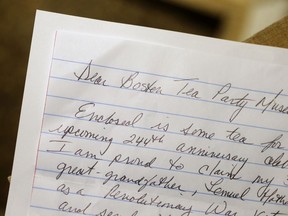 Dear Boston Tea Party Muse
Enclosed is some tea for
upcoming 244th anniversary
I am proud to claim my
great-grandfather, Lemuel
as a Revolutionary War
and